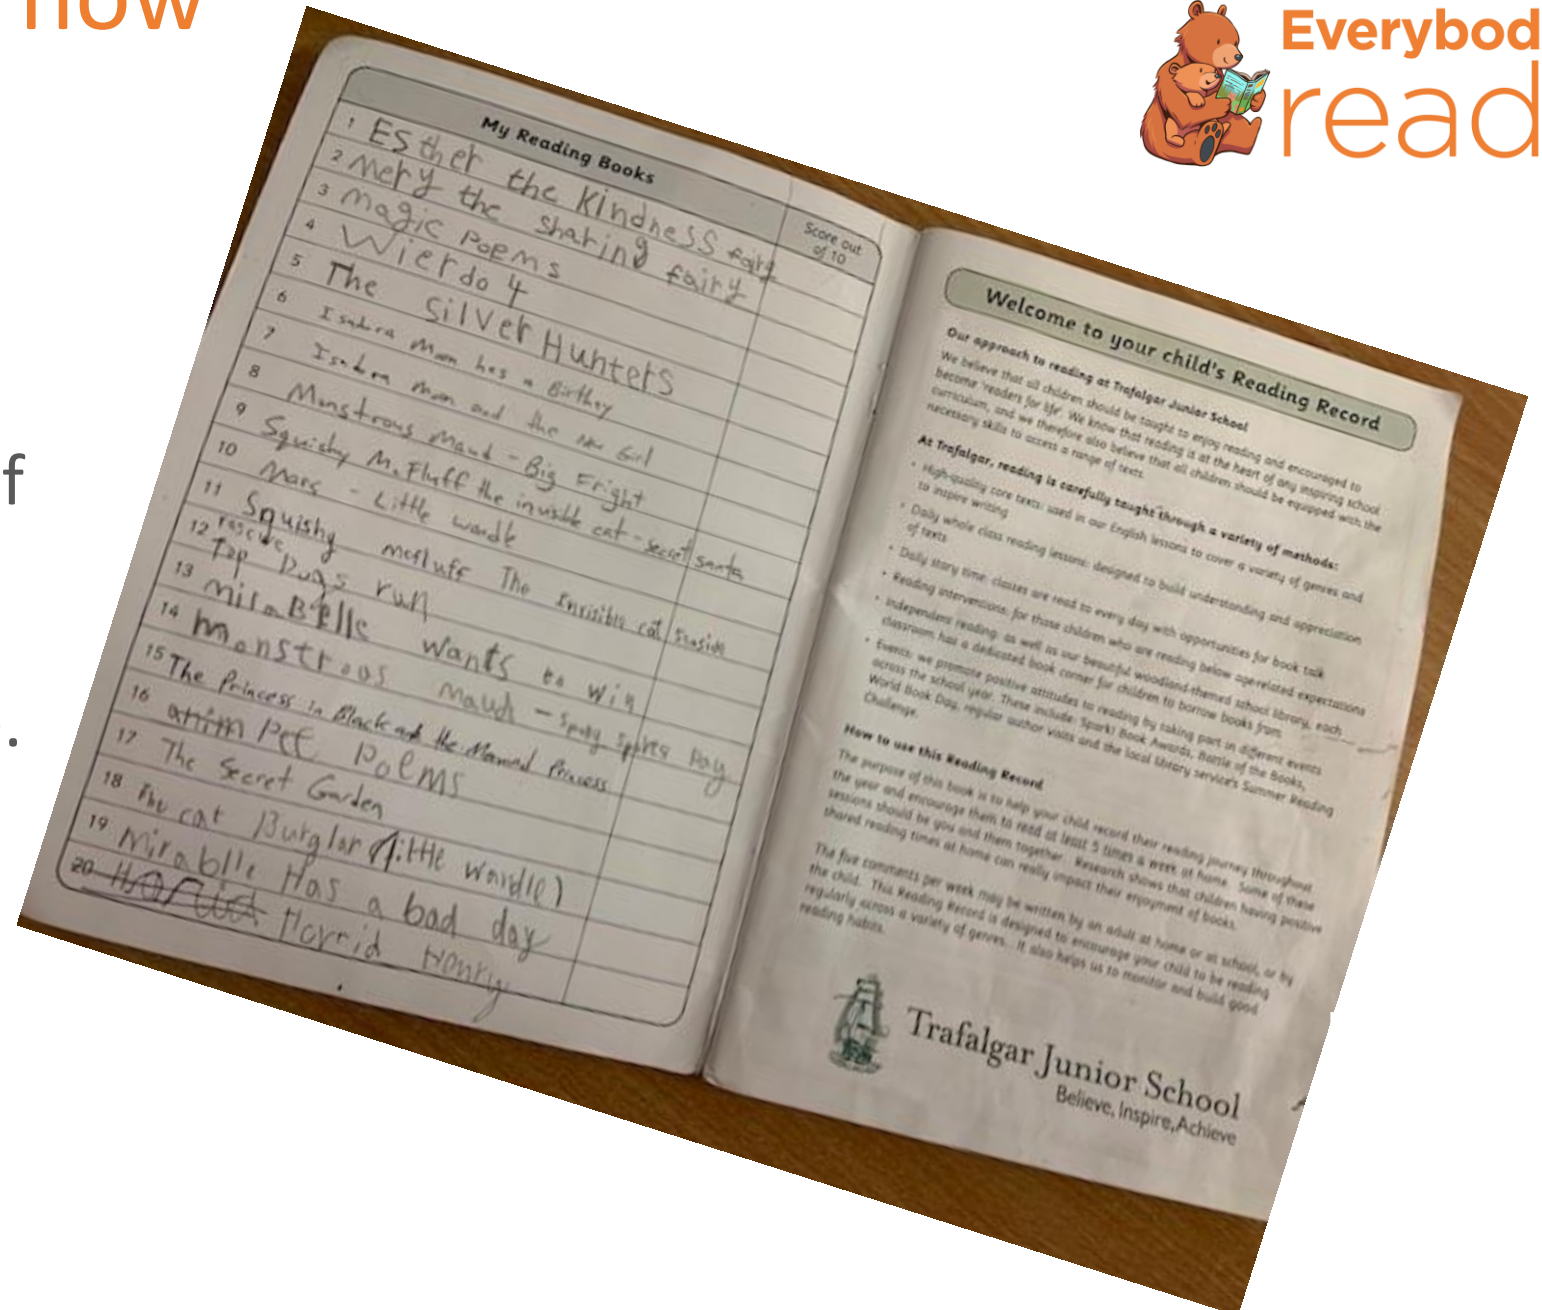 now
Everybod
read
f
.
My Reading Books
Score out
of 10
1 Esther the Kindness fairy
2 Mery the sharing fairy
3 Magic Poems
4 Wierdo 4
5 The Silver Hunters
6 Isadora Moon has a Birthay
7 Isadora moon and the New Girl
8 Monstrous Maud - Big Fright
9 Squishy McFluff the invisible cat - secret santa
10 Mars - Little wandle
11 Squishy mcfluff The Invisible cat seaside
rescue
12 Top Dogs run
13 miraBelle wants to win
14 Monstroos Maud - Spooy Sports Day
15 The Princess in Black and the Mermaid Princess
16 anim Pet Poems
17 The Secret Garden
18 The cat Burglar (little wandle)
19 Mirablle Has a bad day
20 Horrid Henry
Welcome to your child's Reading Record
Our approach to reading at Trafalgar Junior School
We believe that all children should be taught to enjoy reading and encouraged to
become 'readers for life'. We know that reading is at the heart of any inspiring school
curriculum, and we therefore also believe that all children should be equipped with the
necessary skills to access a range of texts.
At Trafalgar, reading is carefully taught through a variety of methods:
• High-quality core texts: used in our English lessons to cover a variety of genres and
to inspire writing
• Daily whole class reading lessons: designed to build understanding and appreciation
of texts
• Daily story time: classes are read to every day with opportunities for book talk
• Reading interventions: for those children who are reading below age-related expectations
• Independent reading: as well as our beautiful woodland-themed school library, each
classroom has a dedicated book corner for children to borrow books from
• Events: we promote positive attitudes to reading by taking part in different events
across the school year. These include: Spark! Book Awards, Battle of the Books,
World Book Day, regular author visits and the local library service's Summer Reading
Challenge.
How to use this Reading Record
The purpose of this book is to help your child record their reading journey throughout
the year and encourage them to read at least 5 times a week at home. Some of these
sessions should be you and them together. Research shows that children having positive
shared reading times at home can really impact their enjoyment of books.
The five comments per week may be written by an adult at home or at school, or by
the child. This Reading Record is designed to encourage your child to be reading
regularly across a variety of genres. It also helps us to monitor and build good
reading habits.
Trafalgar Junior School
Believe, Inspire, Achieve